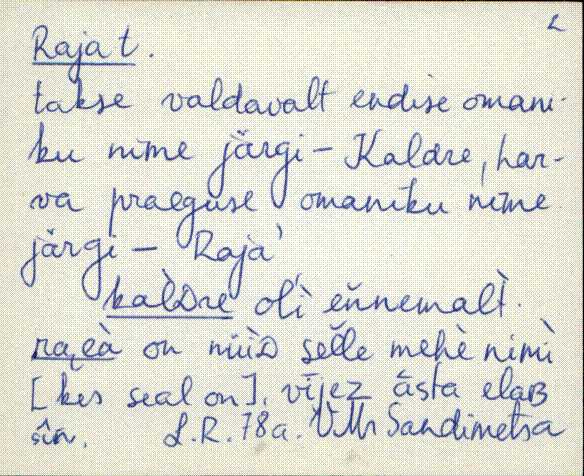 2
Raja t.
takse valdavalt endise omani-
ku nime järgi – Kaldre, har-
va praeguse omaniku nime
järgi – Raja
kaʟ̀Dre oĺì eǹnemaʟt̀.
raɛ̯à on nüüD sèlle mehè nimì
[kes seal on]. vījez āsta elaB
sîn. L.R. 78a. VMr Sandimetsa